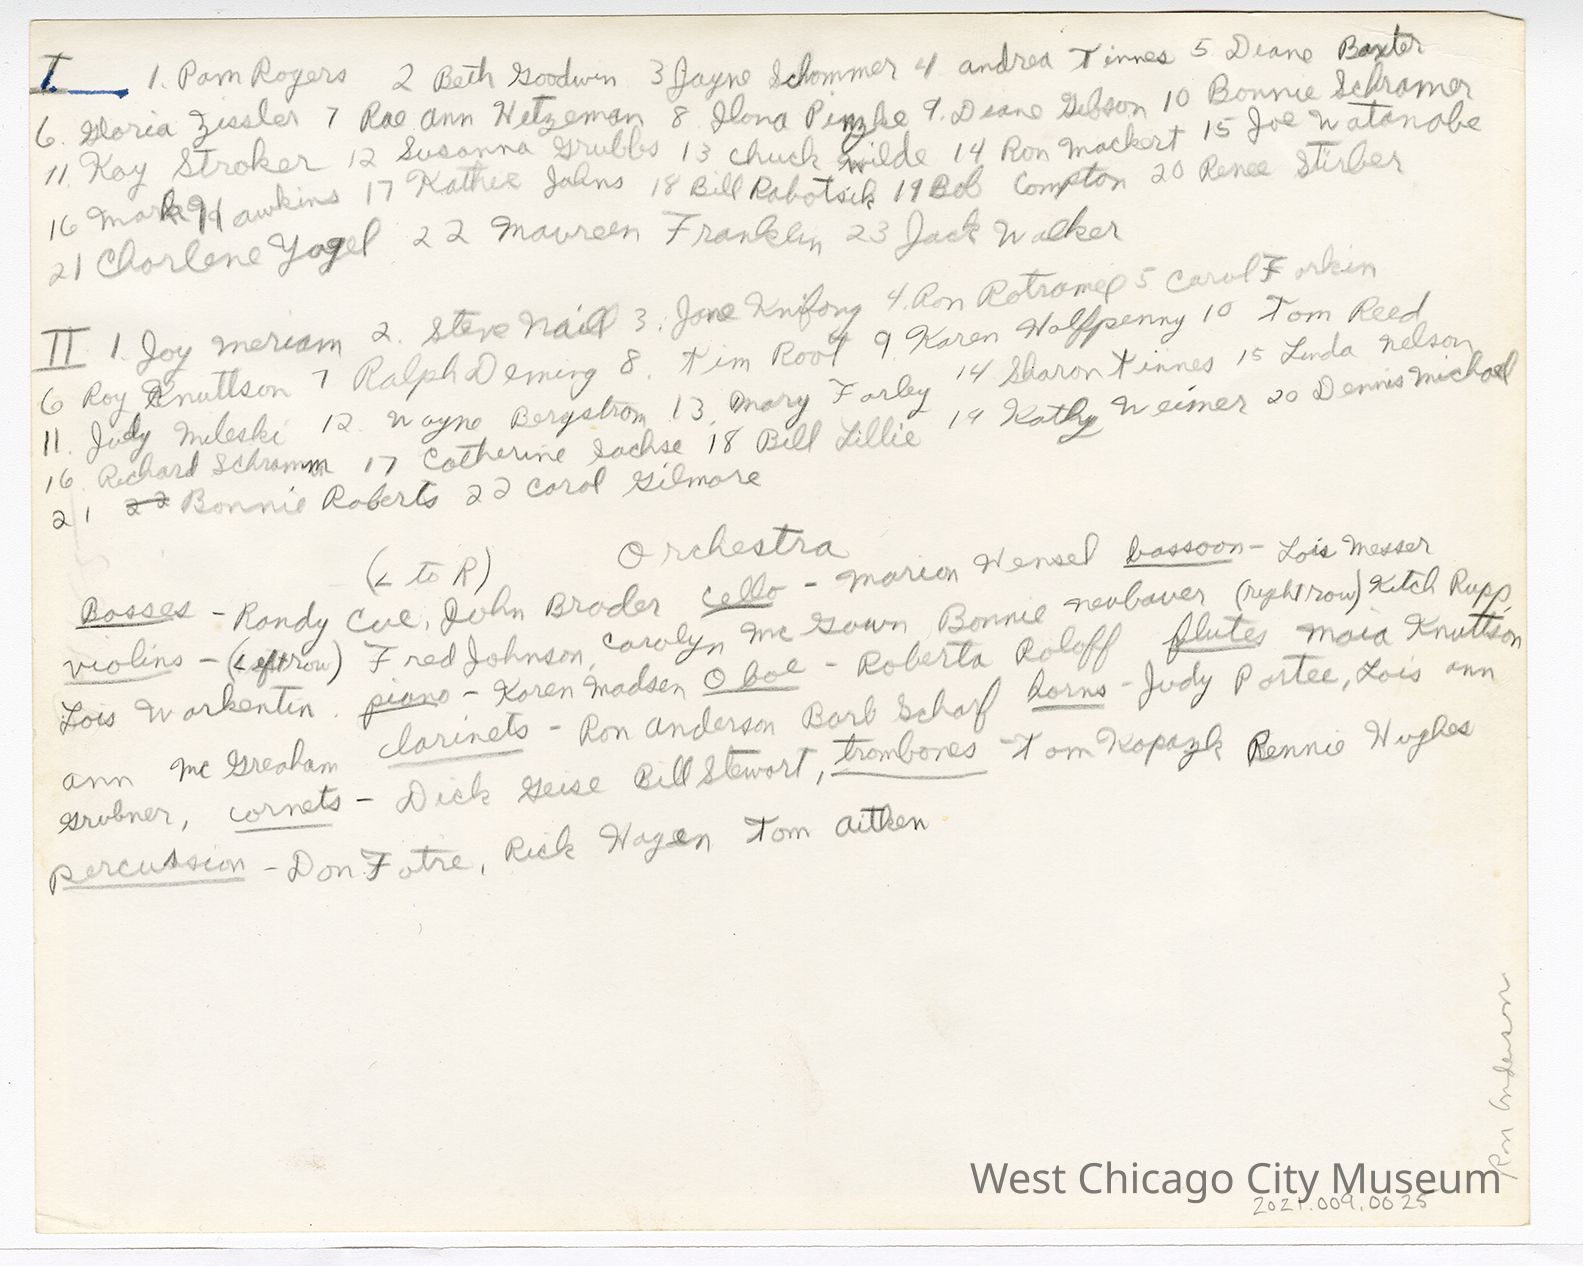 I. 1. Pam Rogers 2 Beth Goodwin 3 Jayne Schommer 4 andrea Tinnes 5 Diane Baxter
6. Gloria Zissler 7 Rae ann Hetzeman 8 Ilona Pinzke 9. Diane Gibson 10 Bonnie Schramer
11. Kay Stroker 12 Susanna Grubbs 13 Chuck Wilde 14 Ron Mackert 15 Joe Watanabe
16 Mark Hawkins 17 Kathie Johns 18 Bill Rabatsik 19 Bob Compton 20 Renee Stirber
21 Charlene Yagel 22 Maureen Franklin 23 Jack Walker
II 1. Joy Meriam 2. Steve Naill 3. Jane Knifong 4. Ron Rotramel 5 Carol Forkin
6 Roy Knuttson 7 Ralph Deming 8. Tim Root 9 Karen Halfpenny 10 Tom Reed
11. Judy Mileski 12. Wayne Bergstrom 13. Mary Farley 14 Sharon Tinnes 15 Linda Nelson
16. Richard Schramm 17 Catherine Sachse 18 Bill Lillie 19 Kathy Weimer 20 Dennis Michael
21 22 Bonnie Roberts 22 Carol Gilmore
(L to R) Orchestra
Basses - Randy Cue, John Brader cello - Marion Hensel bassoon - Lois Messer
violins - (Left row) Fred Johnson, Carolyn Mc Gown Bonnie Neubauer (right row) Kitch Rupp,
Lois Warkentin. piano - Karen Madsen Oboe - Roberta Roloff flutes Maia Knuttson
ann Mc Greaham clarinets - Ron Anderson Barb Scharf horns - Judy Portee, Lois ann
Grubner, cornets - Dick Geise Bill Stewart, trombones - Tom Kopazyk Rennie Hughes
percussion - Don Fotre, Rick Hagen Tom Aitken
Ron Anderson
West Chicago City Museum
2021.009.0025